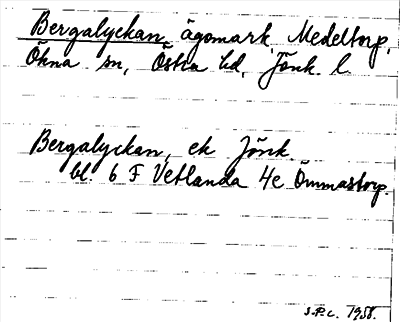 Bergalyckan, ägomark, Medeltorp,
Ökna sn, Östra hd, Jönk. l.
Bergalyckan, ek Jönk
bl. 6 F Vetlanda 4e Ömmastorp.
S.P.L. 1958.